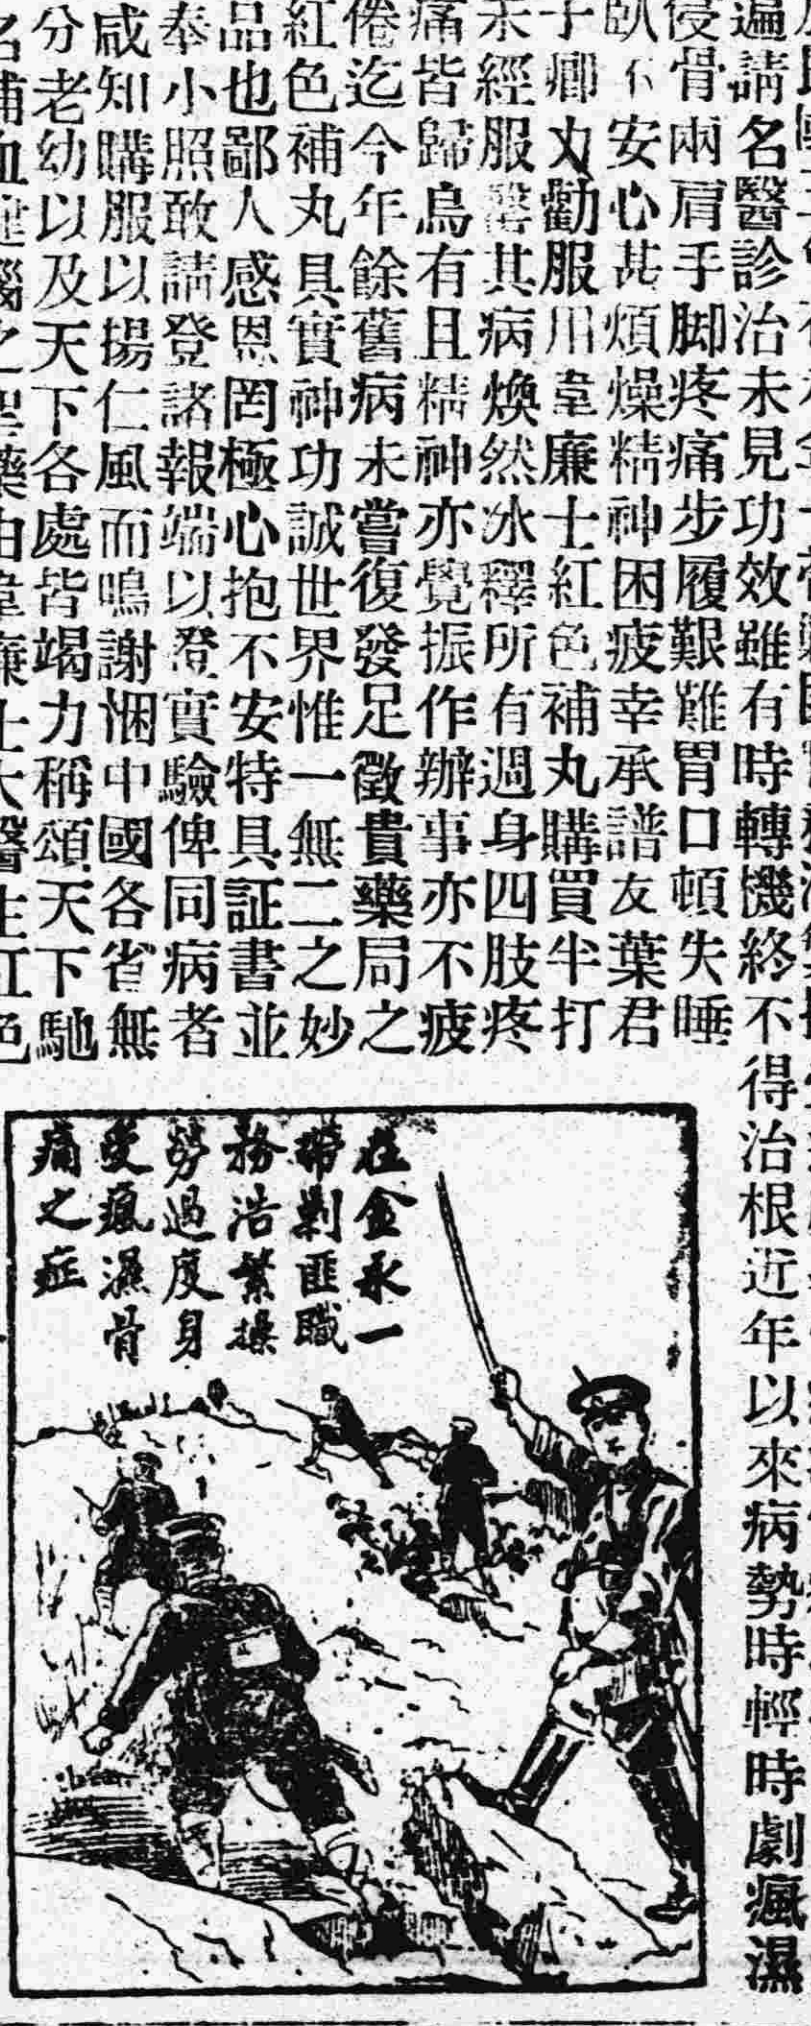 遍請名醫診治未見功效雖有時轉機終不得治根近年以來病勢時輕時劇瘋濕
侵骨兩肩手脚疼痛步履艱難胃口頓失睡
臥不安心甚煩燥精神困疲幸承譜友葉君
子卿力勸服用韋廉士紅色補丸購買半打
未經服罄其病煥然冰釋所有週身四肢疼
痛皆歸烏有且精神亦覺振作辦事亦不疲
倦迄今年餘舊病未嘗復發足徵貴藥局之
紅色補丸具實神功誠世界惟一無二之妙
品也鄙人感恩罔極心抱不安特具証書並
奉小照敢請登諸報端以證實驗俾同病者
咸知購服以揚仁風而鳴謝悃中國各省無
分老幼以及天下各處皆竭力稱頌天下馳
名補血健腦之聖藥由韋廉士大醫生紅色
在金永一
帶剿匪職
務浩繁操
勞過度身
受瘋濕骨
痛之症